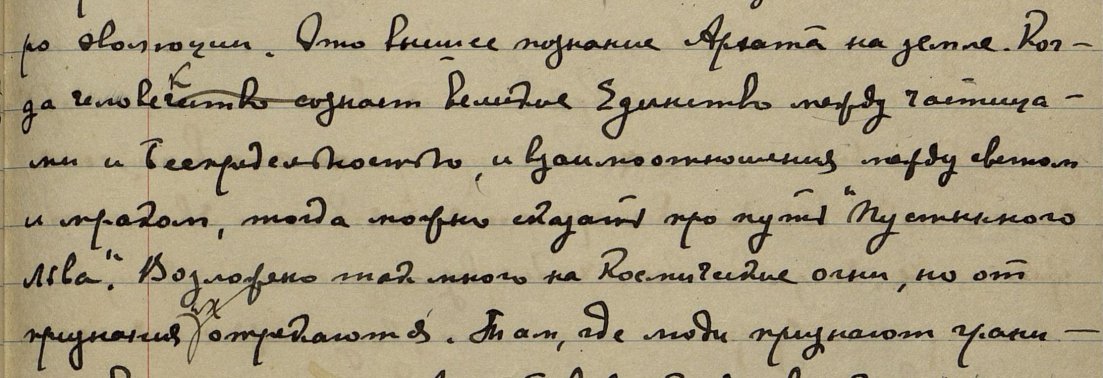 ро эволюции. Это высшее познание Архата на земле. Ког-
да человек сознает великое Единство между частица-
ми и Беспредельностью, и взаимоотношения между светом
и мраком, тогда можно сказать про путь "Пустынного
Льва". Возложено так много на Космические огни, но от
признания их отрекаются. Там, где люди признают грани-